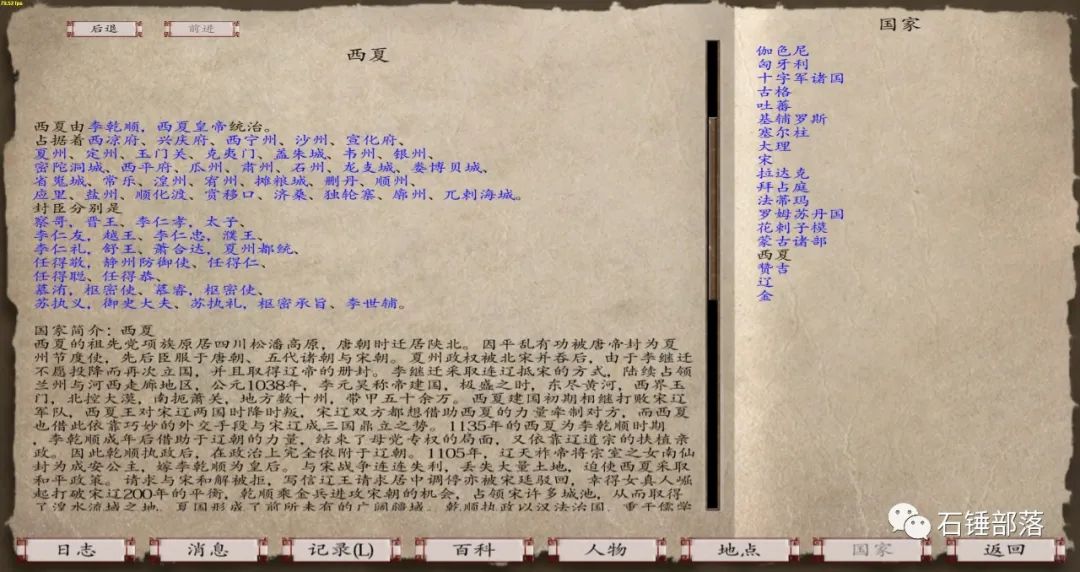 78.52 fps
后退
前进
西夏
西夏由李乾顺，西夏皇帝统治。
占据着西凉府、兴庆府、西宁州、沙州、宣化府、
夏州、定州、玉门关、克夷门、盖朱城、韦州、银州、
密陀洞城、西平府、瓜州、肃州、石州、龙支城、娄博贝城、
省嵬城、常乐、湟州、宥州、摊粮城、删丹、顺州、
应里、盐州、顺化渡、贲移口、济桑、独轮寨、廓州、兀剌海城。
封臣分别是
察哥，晋王、李仁孝，太子、
李仁友，越王、李仁忠，濮王、
李仁礼，舒王、萧合达，夏州都统、
任得敬，静州防御使、任得仁、
任得聪、任得恭、
慕洧，枢密使、慕睿，枢密使、
苏执义，御史大夫、苏执礼，枢密承旨、李世辅。
国家简介：西夏
西夏的祖先党项族原居四川松潘高原，唐朝时迁居陕北。因平乱有功被唐帝封为夏
州节度使，先后臣服于唐朝、五代诸朝与宋朝。夏州政权被北宋并吞后，由于李继迁
不愿投降而再次立国，并且取得辽帝的册封。李继迁采取连辽抵宋的方式，陆续占领
兰州与河西走廊地区，公元1038年，李元昊称帝建国，极盛之时，东尽黄河，西界玉
门，北控大漠，南扼萧关，地方数十州，带甲五十余万。西夏建国初期相继打败宋辽
军队，西夏王对宋辽两国时降时叛，宋辽双方都想借助西夏的力量牵制对方，而西夏
也借此依靠巧妙的外交手段与宋辽成三国鼎立之势。1135年的西夏为李乾顺时期
，李乾顺成年后借助于辽朝的力量，结束了母党专权的局面，又依靠辽道宗的扶植亲
政。因此乾顺执政后，在政治上完全依附于辽朝。1105年，辽天祚帝将宗室之女南仙
封为成安公主，嫁李乾顺为皇后。与宋战争连连失利，丢失大量土地，迫使西夏采取
和平政策。请求与宋和解被拒，写信辽王请求居中调停亦被宋廷驳回，幸得女真人崛
起打破宋辽200年的平衡，乾顺乘金兵进攻宋朝的机会，占领宋许多城池，从而取得
了湟水流域之地，夏国形成了前所未有的广阔疆域。乾顺执政以汉法治国，重于儒学
国家
伽色尼
匈牙利
十字军诸国
古格
吐蕃
基辅罗斯
塞尔柱
大理
宋
拉达克
拜占庭
法蒂玛
罗姆苏丹国
花剌子模
蒙古诸部
西夏
赞吉
辽
金
石锤部落
日志
消息
记录(L)
百科
人物
地点
国家
返回